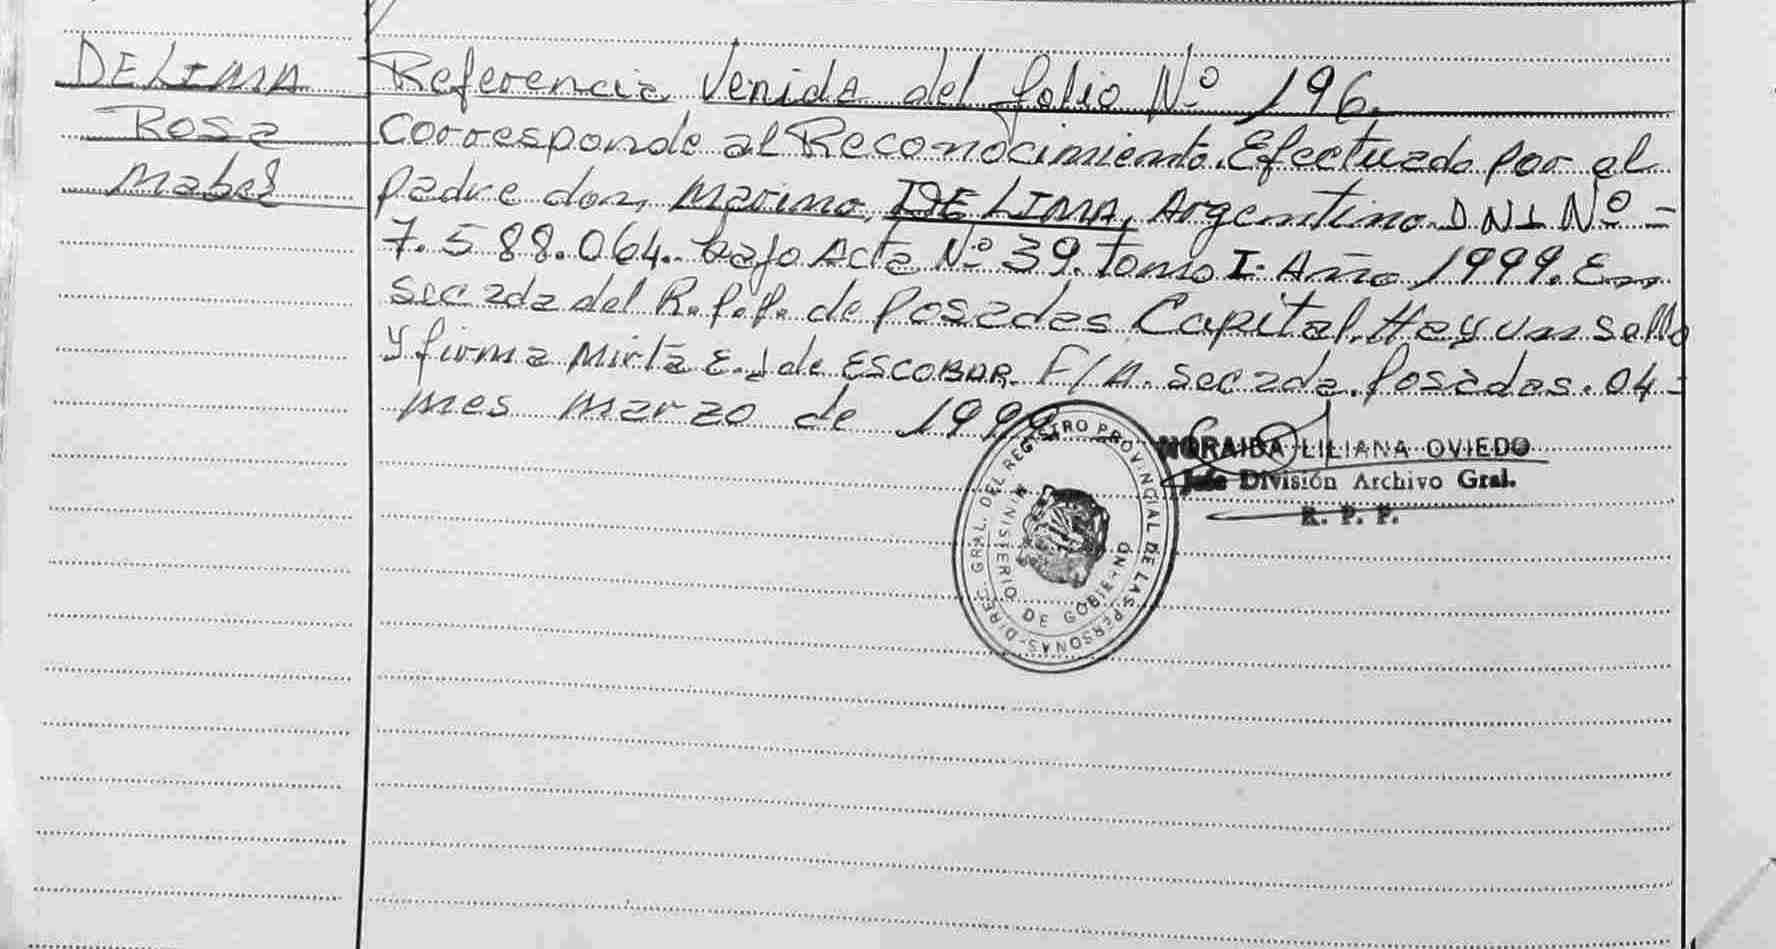 DE LIMA
Rosa
Mabel
Referencia Venida del folio Nº 196.
Corresponde al Reconocimiento. Efectuado por el
padre don, Marino, DE LIMA, Argentino DNI Nº -
7.588.064.. bajo Acta Nº 39. Tomo I. Año 1999. En
sec 2da del R.P.P. de Posadas Capital. Hay un sello
y firma Mirta E. J de ESCOBAR. F/A. sec 2da. Posadas. 04 -
mes marzo de 1999.
NORAIDA LILIANA OVIEDO
Jefe División Archivo Gral.
R. P. P.
DIREC. GRAL. DEL REGISTRO PROVINCIAL DE LAS PERSONAS -
MINISTERIO DE GOBIERNO